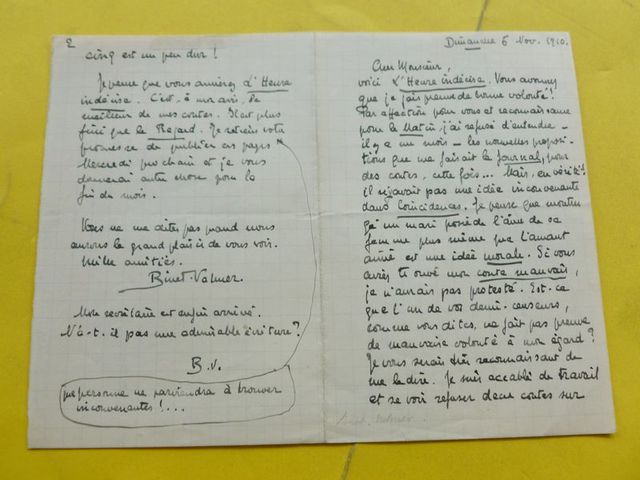 Dimanche 6 Nov. 1910.
Cher Monsieur,
voici L'Heure indécise. Vous avouerez
que je fais preuve de bonne volonté !
Par affection pour vous et reconnaissance
pour le Matin, j'ai refusé d'entendre –
il y a un mois – les nouvelles proposi-
tions que me faisait le Journal, pour
des contes, cette fois... Mais, en vérité !
il n'y avait pas une idée inconvenante
dans Coïncidences. Je pense que montrer
qu'un mari possède l'âme de sa
femme plus même que l'amant
aimé est une idée morale. Si vous
aviez trouvé mon conte mauvais,
je n'aurais pas protesté. Est-ce
que l'un de vos demi-censeurs,
comme vous dites, ne fait pas preuve
de mauvaise volonté à mon égard ?
Je vous serais très reconnaissant de
me le dire. Je suis accablé de travail
et se voir refuser deux contes sur
2
cinq est un peu dur !
Je pense que vous aimerez L'Heure
indécise. C'est, à mon avis, le
meilleur de mes contes. Il est plus
fini que le Regard. Je retiens votre
promesse de publier ces pages
Mercredi prochain et je vous
donnerai autre chose pour la
fin du mois.
Vous ne me dites pas quand nous
aurons le grand plaisir de vous voir.
Mille amitiés.
Binet-Valmer.
Mon secrétaire est enfin arrivé.
N'a-t-il pas une admirable écriture ?
B.V.
que personne ne parviendra à trouver
inconvenantes !...